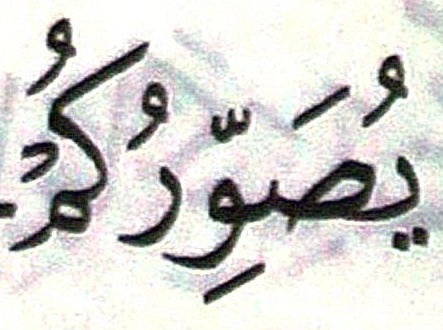 يُصَوِّرُكُمْ